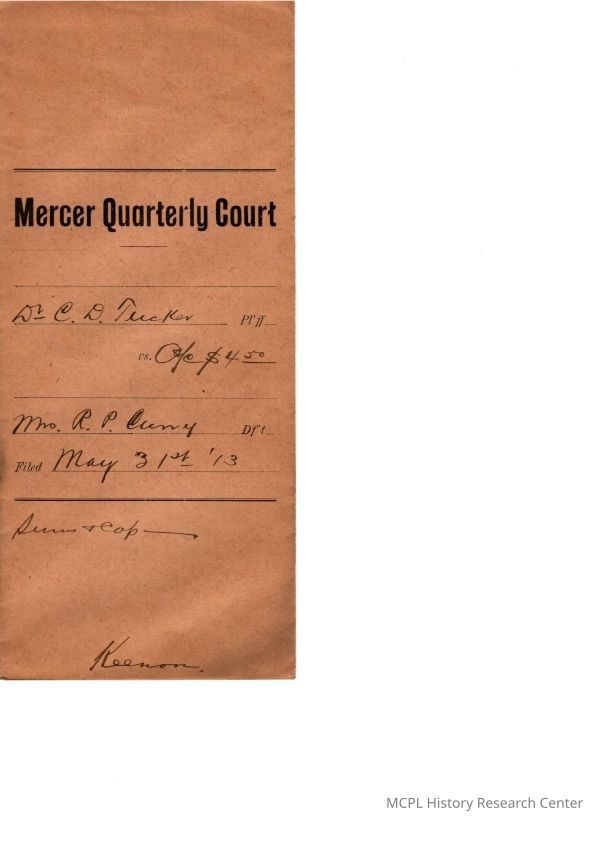 Mercer Quarterly Court
Dr C. D. Tucker Pl'ff
vs. O/c $4 50
Mrs. R. P. Curry Df't
Filed May 31st '13
Sums & Cop
Keenon.
MCPL History Research Center